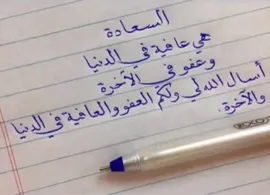 السعادة
هي عافية في الدنيا
وعفو في الآخرة
أسأل الله لي ولكم العفو والعافية في الدنيا
والآخرة.